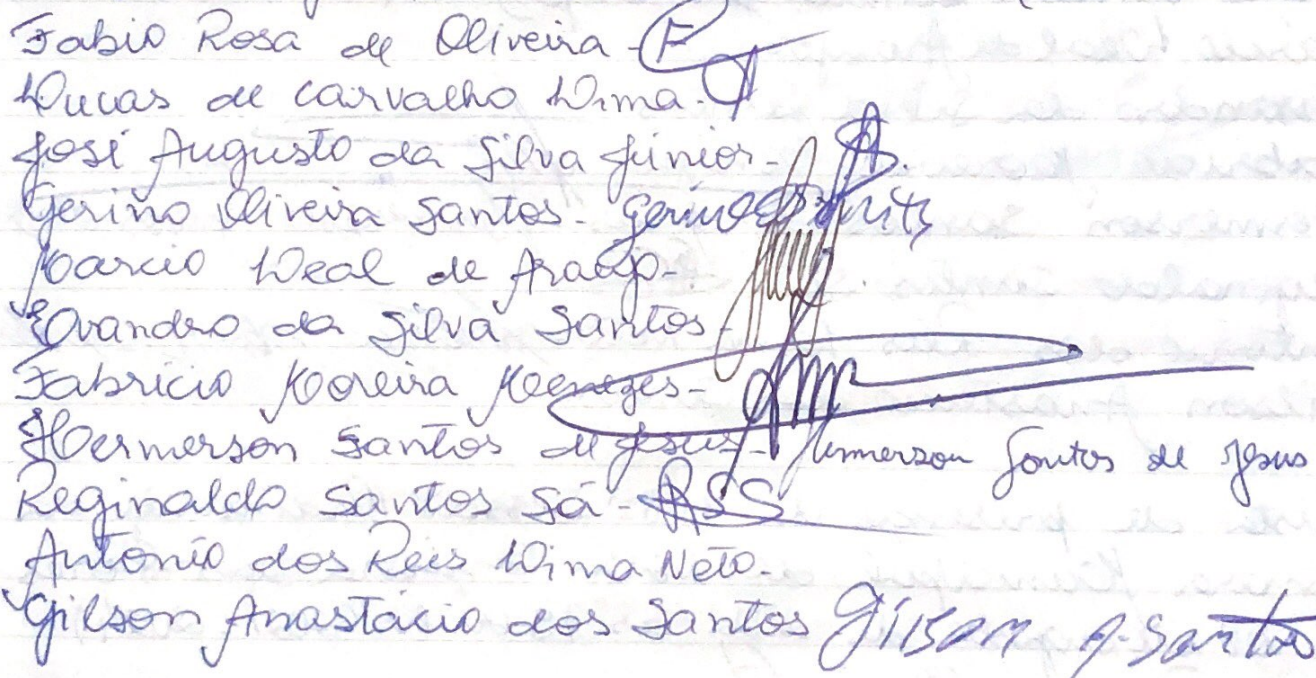 Fabio Rosa de Oliveira - F
Lucas de Carvalho Lima -
José Augusto da Silva Júnior -
Gerino Oliveira Santos - Gerino
Marcio Leal de Araújo -
Evandro da Silva Santos -
Fabricio Moreira Menezes -
Hermerson Santos de Jesus - Hermerson Santos de Jesus
Reginaldo Santos Sá - RSS
Antonio dos Reis Lima Neto -
Gilson Anastácio dos Santos Gilson A. Santos